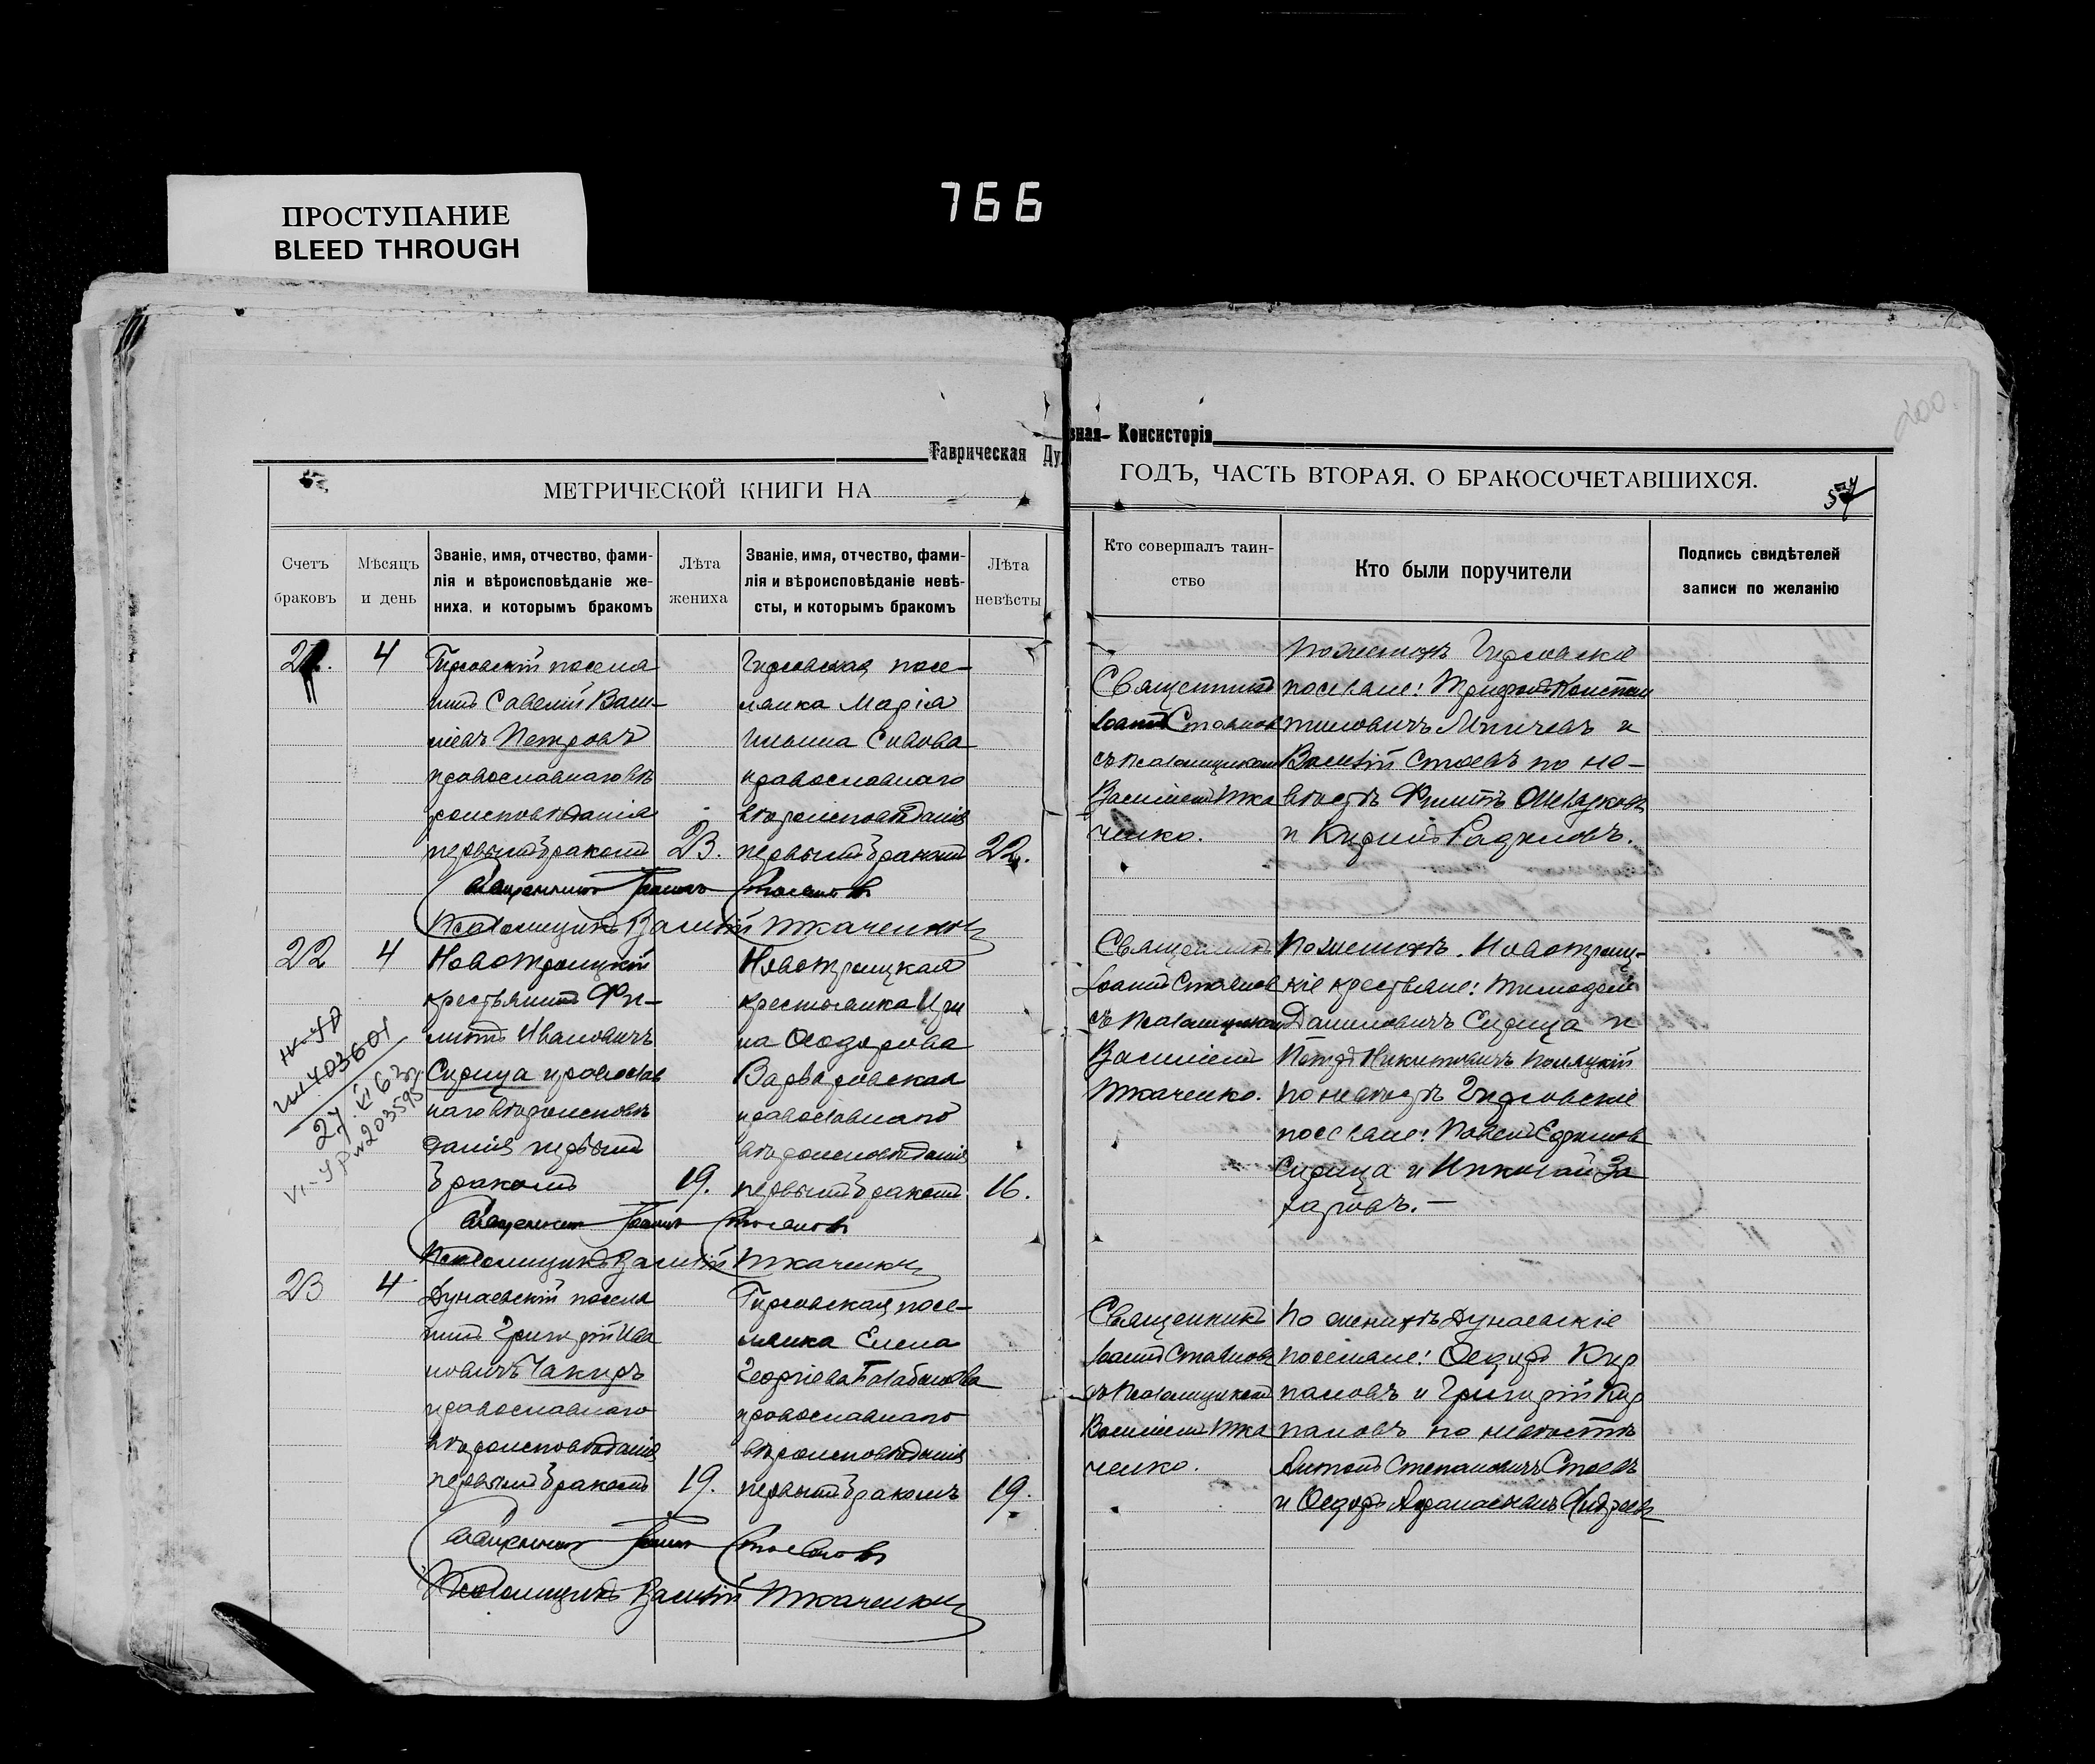 766
ПРОСТУПАНИЕ
BLEED THROUGH
Таврическая Ду
вная Консисторія
МЕТРИЧЕСКОЙ КНИГИ НА
ГОДЪ, ЧАСТЬ ВТОРАЯ, О БРАКОСОЧЕТАВШИХСЯ.
57
200.
Счетъ
браковъ
Мѣсяцъ
и день
Званіе, имя, отчество, фами-
лія и вѣроисповѣданіе же-
ниха, и которымъ бракомъ
Лѣта
жениха
Званіе, имя, отчество, фами-
лія и вѣроисповѣданіе невѣ-
сты, и которымъ бракомъ
Лѣта
невѣсты
Кто совершалъ таин-
ство
Кто были поручители
Подпись свидѣтелей
записи по желанію
4
Гирсовскій поселя
нинъ Савелій Васи-
льевъ Петровъ
православнаго вѣ
роисповѣданія
первымъ бракомъ
23.
Гирсовская посе-
лянка Марія
Ильина
православнаго
вѣроисповѣданія
первымъ бракомъ
22.
Священникъ
Іоаннъ Стоянов
съ псаломщикомъ
Василіем Тка
ченко.
По женихѣ Гирсовскіе
поселяне: Трифонъ Констан
тиновичъ и
Василій Стоевъ по не-
вѣстѣ Филиппъ
и Кирилъ Радуловъ.
Священникъ Іоаннъ Стояновъ
Псаломщикъ Василій Ткаченко
22
4
Новотроицкій
крестьянинъ Фи-
липпъ Ивановичъ
Сирица православ
наго вѣроисповѣ
данія первымъ
бракомъ
19.
Новотроицкая
крестьянка Ири
на Ѳеодорова
Варваровская
православнаго
вѣроисповѣданія
первымъ бракомъ
16.
Священникъ
Іоаннъ Стоянов
съ псаломщикомъ
Василіемъ
Ткаченко.
По женихѣ. Новотроиц-
кіе крестьяне: Тимофей
Даниловичъ Сирица и
Петръ Никитовичъ
по невѣстѣ Гирсовскіе
поселяне: Павелъ Ефимов
Сирица и Николай За
харовъ.—
27.VI 63
Священникъ Іоаннъ Стояновъ
Псаломщикъ Василій Ткаченко
23
4
Дунаевскій поселя
нинъ Григорій Ива
новичъ Чакиръ
православнаго
вѣроисповѣданія
первымъ бракомъ
19.
Гирсовская посе-
лянка Елена
Георгіева Балабанова
православнаго
вѣроисповѣданія
первымъ бракомъ
19.
Священникъ
Іоаннъ Стоянов
съ псаломщикомъ
Василіемъ Тка
ченко.
По женихѣ Дунаевскіе
поселяне: Ѳедоръ Кир
пановъ и Григорій Кир
пановъ по невѣстѣ
Антонъ Степановичъ Стоевъ
и Ѳедоръ Афанасьевъ
Священникъ Іоаннъ Стояновъ
Псаломщикъ Василій Ткаченко